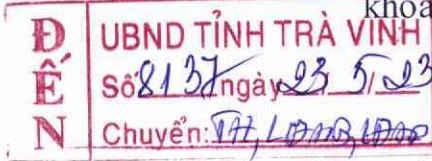 khoa
ĐẾN
UBND TỈNH TRÀ VINH
Số 8137 ngày 23/5/23
Chuyển: TH,